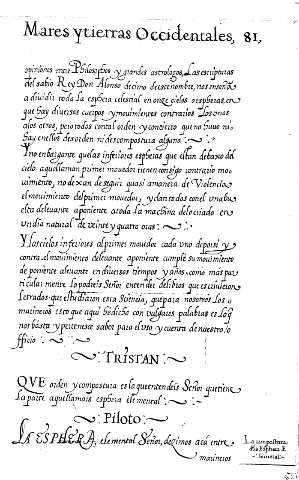 Mares y tierras Occidentales, 81,
opiniones entre Philosophos y grandes astrologos, Las escripturas
del sabio Rey Don Alonso decimo de este nombre, nos enseña
a dividir toda la esphera celestial en onze cielos o espheras, en
que hay diversos cuerpos y movimientos contrarios los unos
a los otros, pero todos con tal orden y concierto que no huvo ni
hay en ellos desorden ni descompostura alguna
Y no embargante que las inferiores espheras que estan debaxo del
cielo a quellaman primer movedor tienen consigo contrario mo
vimiento, no dexan de seguir quasi a manera de Violencia
el movimiento del primer movedor, y dan todos con el una bu
elta de levante a poniente a toda la machina de lo criado en
un dia natural de veinte y quatro oras
Y los cielos inferiores al primer movedor cada uno de por si y
contra el movimiento de levante a poniente cumple su movimiento
de poniente a levante en diversos tiempos y años, como mas par
ticularmente lo podreis Señor entender de libros que escrivieron
letrados que estudiaron esta Sciencia, que para nosotros los
marineros esto que aqui he dicho con vulgares palabras es lo q
nos basta y pertenesce saber para el uso y cuenta de nuestro o
fficio
TRISTAN
QVE orden y compostura es la que entendeis Señor que tiene
la parte a quellamais esphera elemental
Piloto
LA ESPHERA, elemental Señor, dezimos aca entre
marineros
La compostura
dela Esphera E
lemental